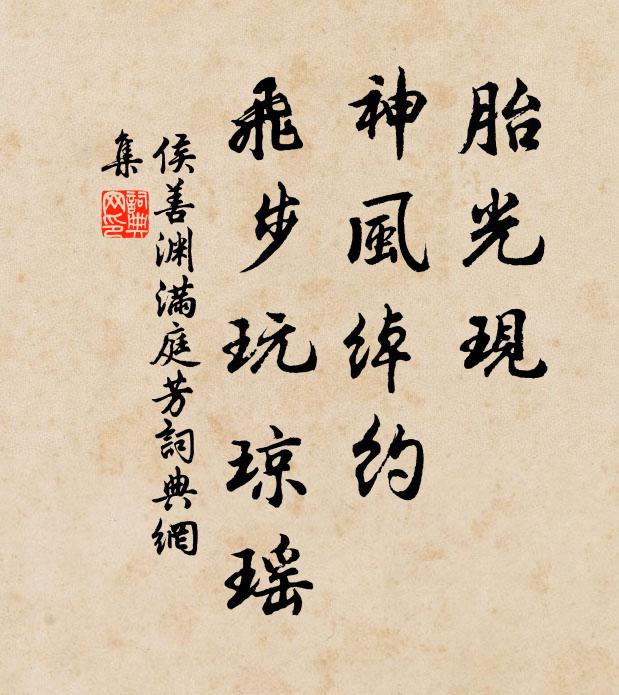 胎光現
神風綽約
飛步玩琼瑶
侯善渊滿庭芳詞典網
集
詞典
网印